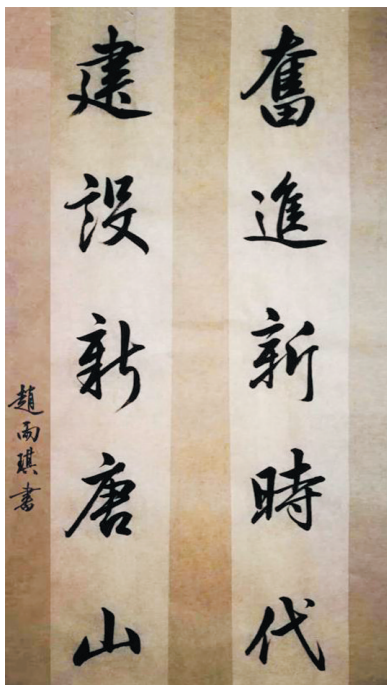 奮進新時代
建設新唐山
趙雨琪書